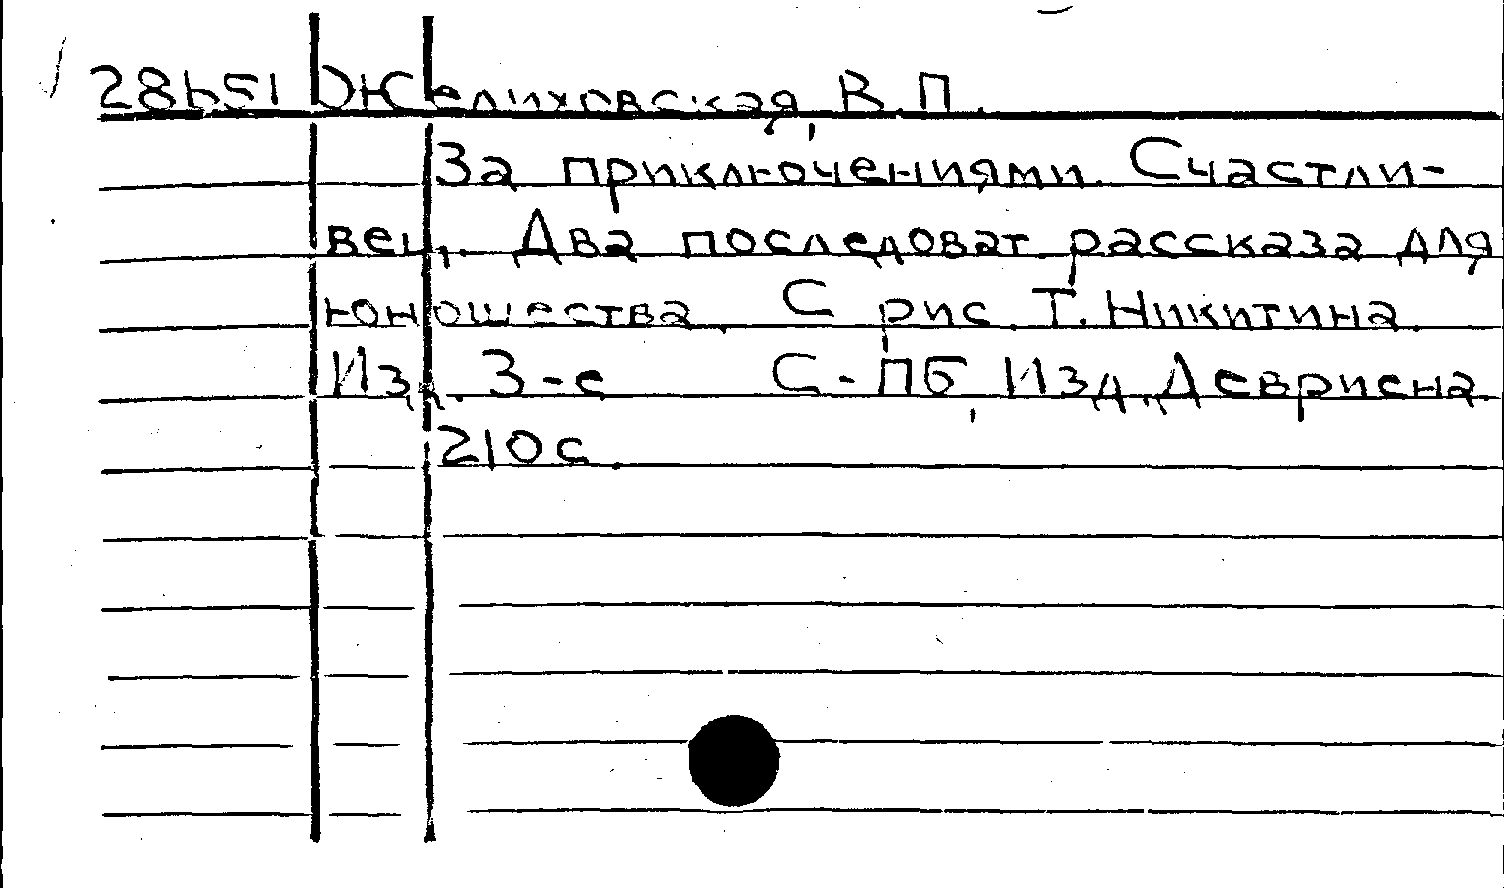 28b51 Желиховская, В.П.
За приключениями. Счастли-
вец. Два последоват. рассказа для
юношества. С рис. Т. Никитина.
Изд. 3-е С-Пб, Изд. Девриена.
210 с.